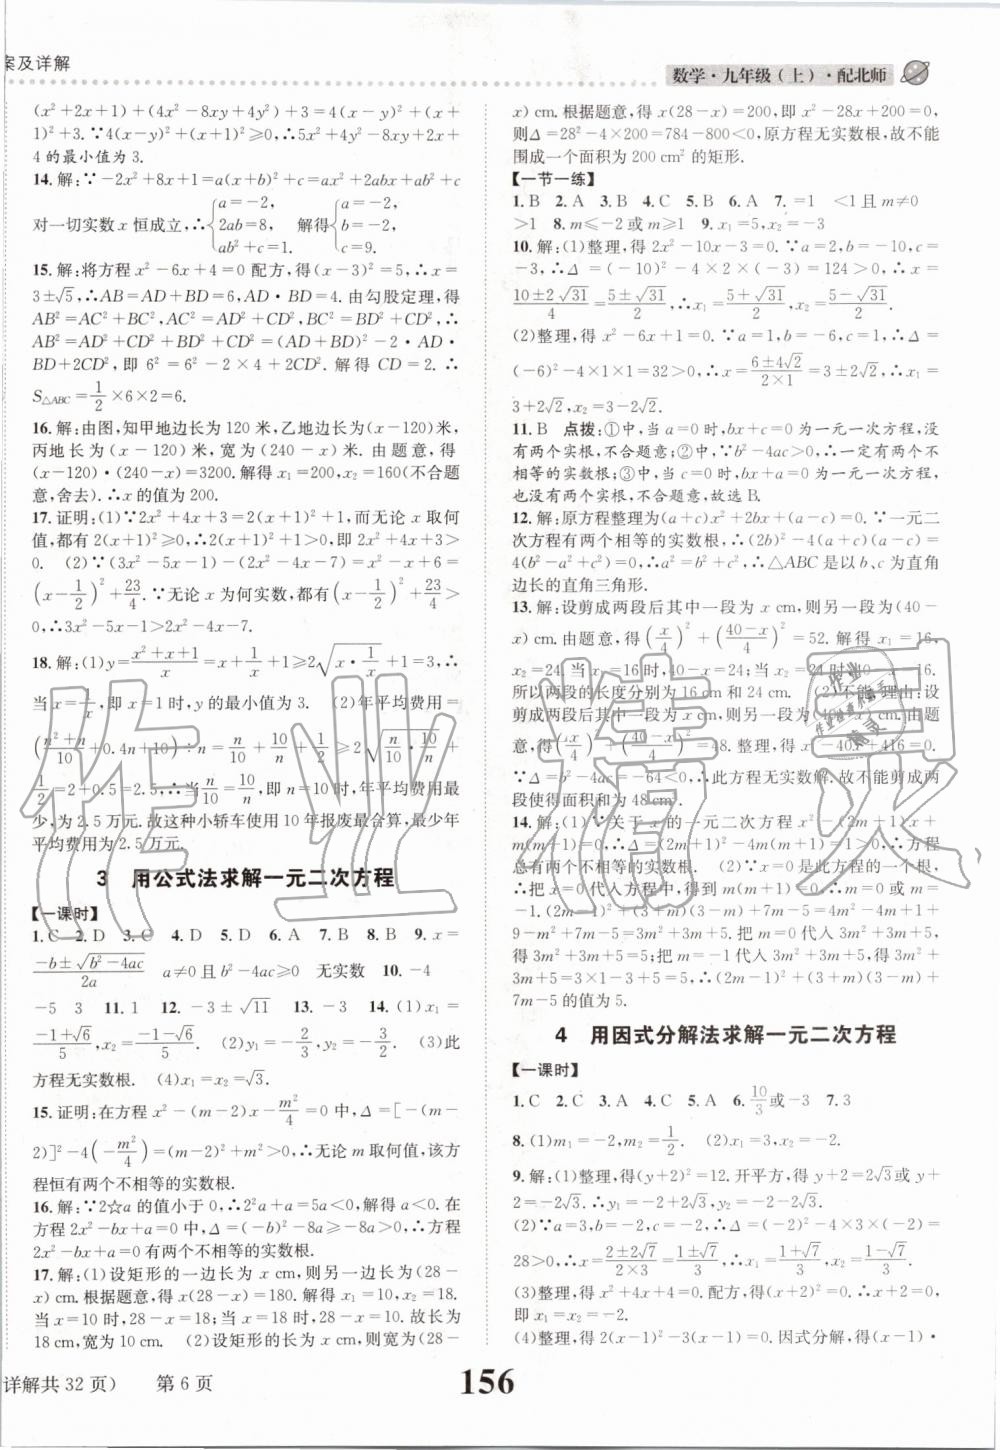 案及详解
数学·九年级(上)·配北师
(x²+2x+1)+(4x²-8xy+4y²)+3=4(x-y)²+(x+
1)²+3.∵4(x-y)²+(x+1)²≥0,∴5x²+4y²-8xy+2x+
4的最小值为3.
14.解:∵-2x²+8x+1=a(x+b)²+c=ax²+2abx+ab²+c
对一切实数x恒成立,∴{a=-2, 2ab=8, ab²+c=1. 解得{a=-2, b=-2, c=9.
15.解:将方程x²-6x+4=0配方,得(x-3)²=5,∴x=
3±√5,∴AB=AD+BD=6,AD·BD=4.由勾股定理,得
AB²=AC²+BC²,AC²=AD²+CD²,BC²=BD²+CD²,∴
AB²=AD²+CD²+BD²+CD²=(AD+BD)²-2·AD·
BD+2CD²,即6²=6²-2×4+2CD².解得CD=2.∴
S△ABC=1/2×6×2=6.
16.解:由图,知甲地边长为120米,乙地边长为(x-120)米,
丙地长为(x-120)米,宽为(240-x)米.由题意,得
(x-120)·(240-x)=3200.解得x₁=200,x₂=160(不合题
意,舍去).∴x的值为200.
17.证明:(1)∵2x²+4x+3=2(x+1)²+1,而无论x取何
值,都有2(x+1)²≥0,∴2(x+1)²+1>0,即2x²+4x+3>
0. (2)∵(3x²-5x-1)-(2x²-4x-7)=x²-x+6=
(x-1/2)²+23/4.∵无论x为何实数,都有(x-1/2)²+23/4>
0,∴3x²-5x-1>2x²-4x-7.
18.解:(1)y=(x²+x+1)/x=x+1/x+1≥2√(x·1/x)+1=3.
当x=1/x,即x=1时,y的最小值为3. (2)年平均费用=
((n²+n)/10+0.4n+10)÷n=n/10+10/n+1/2≥2√(n/10·10/n)+
1/2=2+0.5=2.5,当n/10=10/n,即n=10时,年平均费用最
少,为2.5万元.故这种小轿车使用10年报废最合算,最少年
平均费用为2.5万元.
3 用公式法求解一元二次方程
【一课时】
1.C 2.D 3.C 4.D 5.D 6.A 7.B 8.B 9.x=
(-b±√(b²-4ac))/2a a≠0且b²-4ac≥0 无实数 10.-4
-5 3 11.1 12.-3±√11 13.-3 14.(1)x₁=
(-1+√6)/5,x₂=(-1-√6)/5. (2)y₁=-2/3,y₂=3/2. (3)此
方程无实数根. (4)x₁=x₂=√3.
15.证明:在方程x²-(m-2)x-m²/4=0中,Δ=[-(m-
2)]²-4(-m²/4)=(m-2)²+m²>0,∴无论m取何值,该方
程恒有两个不相等的实数根.
16.解:∵2☆a的值小于0,∴2²a+a=5a<0,解得a<0.在
方程2x²-bx+a=0中,Δ=(-b)²-8a≥-8a>0,∴方程
2x²-bx+a=0有两个不相等的实数根.
17.解:(1)设矩形的一边长为x cm,则另一边长为(28-
x)cm.根据题意,得x(28-x)=180.解得x₁=10,x₂=18.
当x=10时,28-x=18;当x=18时,28-x=10.故长为
18 cm,宽为10 cm. (2)设矩形的长为x cm,则宽为(28-
x) cm.根据题意,得x(28-x)=200,即x²-28x+200=0,
则Δ=28²-4×200=784-800<0,原方程无实数根,故不能
围成一个面积为200 cm²的矩形.
【一节一练】
1.B 2.A 3.B 4.C 5.B 6.A 7.=1 <1且m≠0
>1 8.m≤-2或m≥1 9.x₁=5,x₂=-3
10.解:(1)整理,得2x²-10x-3=0.∵a=2,b=-10,c=
-3,∴Δ=(-10)²-4×2×(-3)=124>0,∴x=
(10±2√31)/4=(5±√31)/2,∴x₁=(5+√31)/2,x₂=(5-√31)/2.
(2)整理,得x²-6x+1=0.∵a=1,b=-6,c=1,∴Δ=
(-6)²-4×1×1=32>0,∴x=(6±4√2)/(2×1)=3±2√2,∴x₁=
3+2√2,x₂=3-2√2.
11.B 点拨:①中,当a=0时,bx+c=0为一元一次方程,没
有两个实根,不合题意;②中,∵b²-4ac>0,∴一定有两个不
相等的实数根;③中,当c=0时,bx+a=0为一元一次方程,
也没有两个实根,不合题意,故选B.
12.解:原方程整理为(a+c)x²+2bx+(a-c)=0.∵一元二
次方程有两个相等的实数根,∴(2b)²-4(a+c)(a-c)=
4(b²-a²+c²)=0,∴a²=b²+c²,∴△ABC是以b、c为直角
边长的直角三角形.
13.解:设剪成两段后其中一段为x cm,则另一段为(40-
x)cm.由题意,得(x/4)²+((40-x)/4)²=52.解得x₁=16,
x₂=24.当x=16时,40-x=24;当x=24时,40-x=16.
所以两段的长度分别为16 cm和24 cm. (2)不能.理由:设
剪成两段后其中一段为x cm,则另一段为(40-x)cm.由题
意,得(x/4)²+((40-x)/4)²=48.整理,得x²-40x+416=0.
∵Δ=b²-4ac=-64<0,∴此方程无实数解.即不能剪成两
段使得面积和为48 cm².
14.解:(1)∵关于x的一元二次方程x²-(2m+1)x+
m(m+1)=0,∴Δ=(2m+1)²-4m(m+1)=1>0,∴方程
总有两个不相等的实数根. (2)∵x=0是此方程的一个根,
∴把x=0代入方程中得到m(m+1)=0,∴m=0或m=
-1.(2m-1)²+(3+m)(3-m)+7m-5=4m²-4m+1+
9-m²+7m-5=3m²+3m+5.把m=0代入3m²+3m+5,
得3m²+3m+5=5;把m=-1代入3m²+3m+5,得3m²+
3m+5=3×1-3+5=5,∴(2m-1)²+(3+m)(3-m)+
7m-5的值为5.
4 用因式分解法求解一元二次方程
【一课时】
1.C 2.C 3.A 4.C 5.A 6.10/3或-3 7.3
8.(1)m₁=-2,m₂=1/2. (2)x₁=3,x₂=-2.
9.解:(1)整理,得(y+2)²=12.开平方,得y+2=2√3或y+
2=-2√3.∴y₁=-2+2√3,y₂=-2-2√3.
(2)∵a=3,b=-2,c=-2,∴Δ=(-2)²-4×3×(-2)=
28>0,∴x=(2±2√7)/(2×3)=(1±√7)/3,∴x₁=(1+√7)/3,x₂=(1-√7)/3.
(3)整理,得x²+4x+4=0.因式分解,得(x+2)²=0,
即x₁=x₂=-2.
(4)整理,得2(x-1)²-(x²-1)=0.因式分解,得(x-1)·
详解共32页) 第6页
156
作业精灵